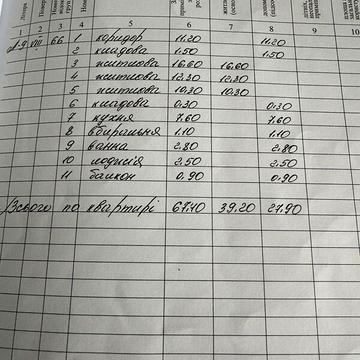 Літера
1 2 3 4 5 6 7 8 9 10
VIII 66 1 коридор 11.20 11.20
2 кладова 1.50 1.50
3 житлова 16.60 16.60
4 житлова 12.30 12.30
5 житлова 10.30 10.30
6 кладова 0.30 0.30
7 кухня 7.60 7.60
8 вбиральня 1.10 1.10
9 ванна 2.80 2.80
10 лоджія 2.50 2.50
11 балкон 0.90 0.90
Всього по квартирі 67.10 39.20 27.90